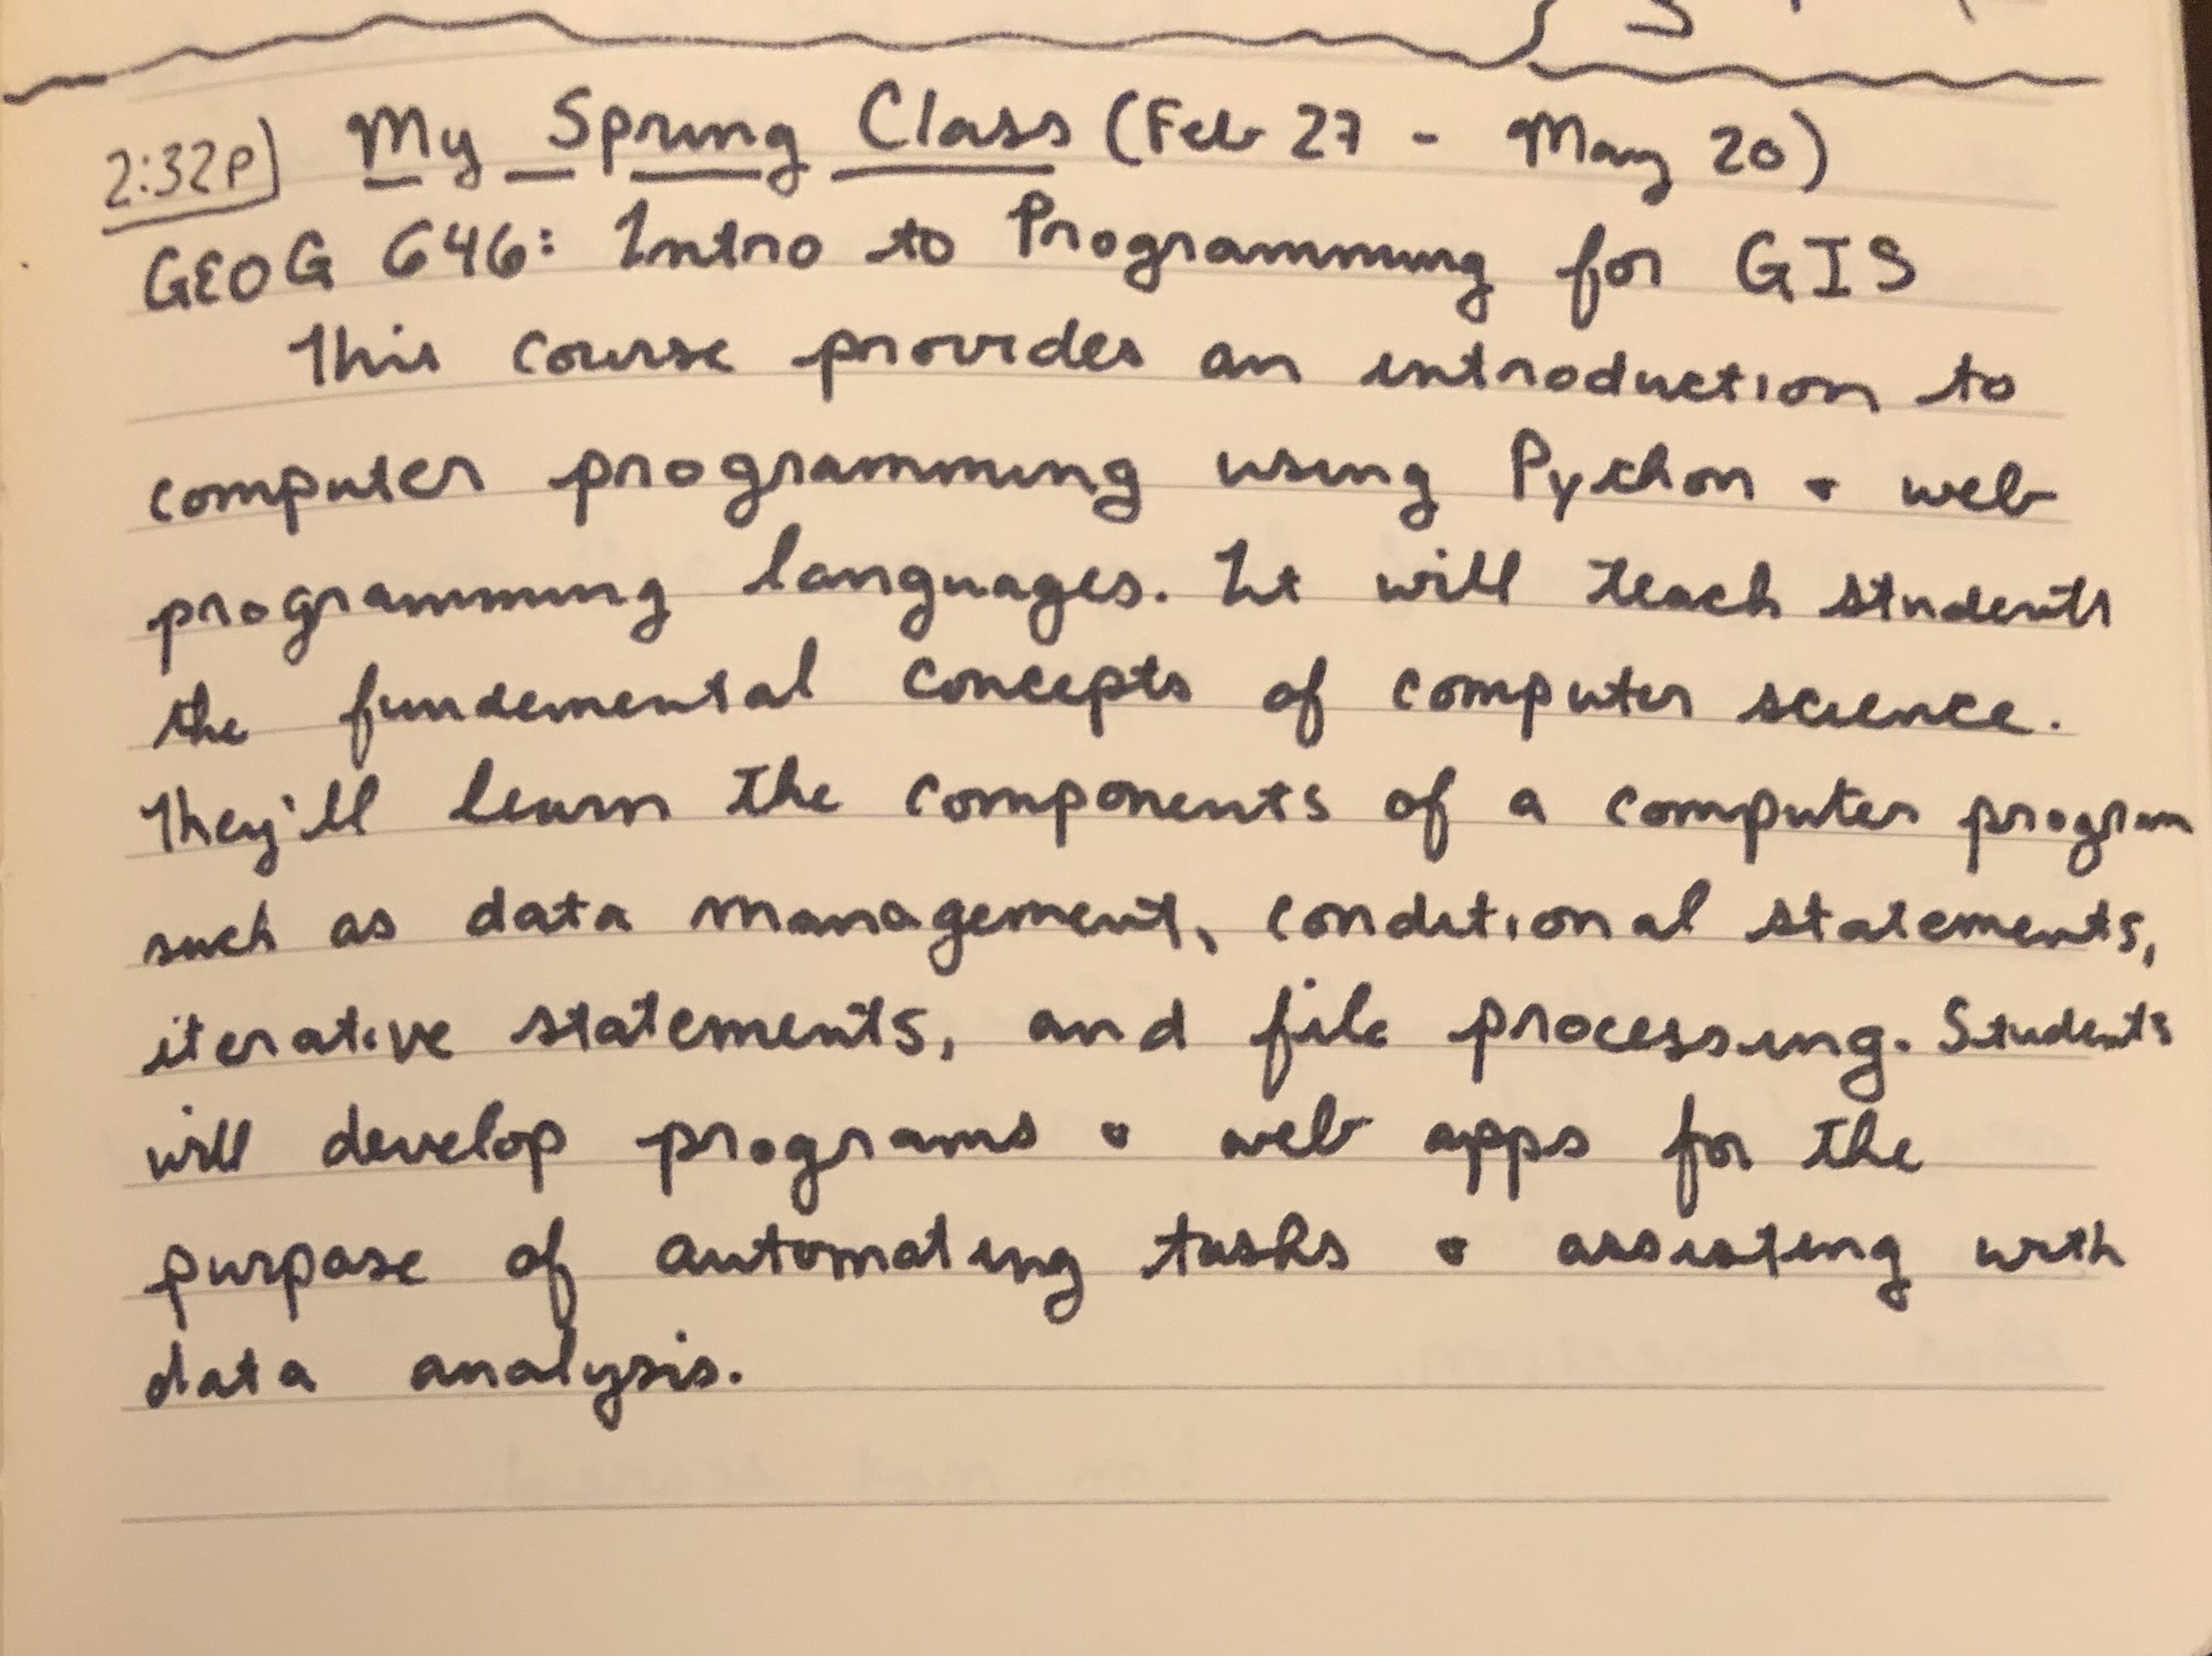 2:32P] My Spring Class (Feb 27 - May 20)
GEOG 646: Intro to Programming for GIS
This course provides an introduction to
computer programming using Python & web
programming languages. It will teach students
the fundemental concepts of computer science.
They'll learn the components of a computer program
such as data management, conditional statements,
iterative statements, and file processing. Students
will develop programs & web apps for the
purpose of automating tasks & assisting with
data analysis.